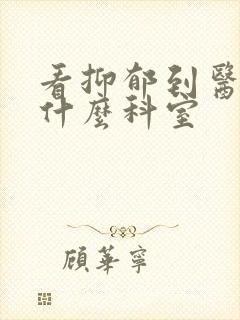 看抑郁到醫
什麼科室
顧華寧